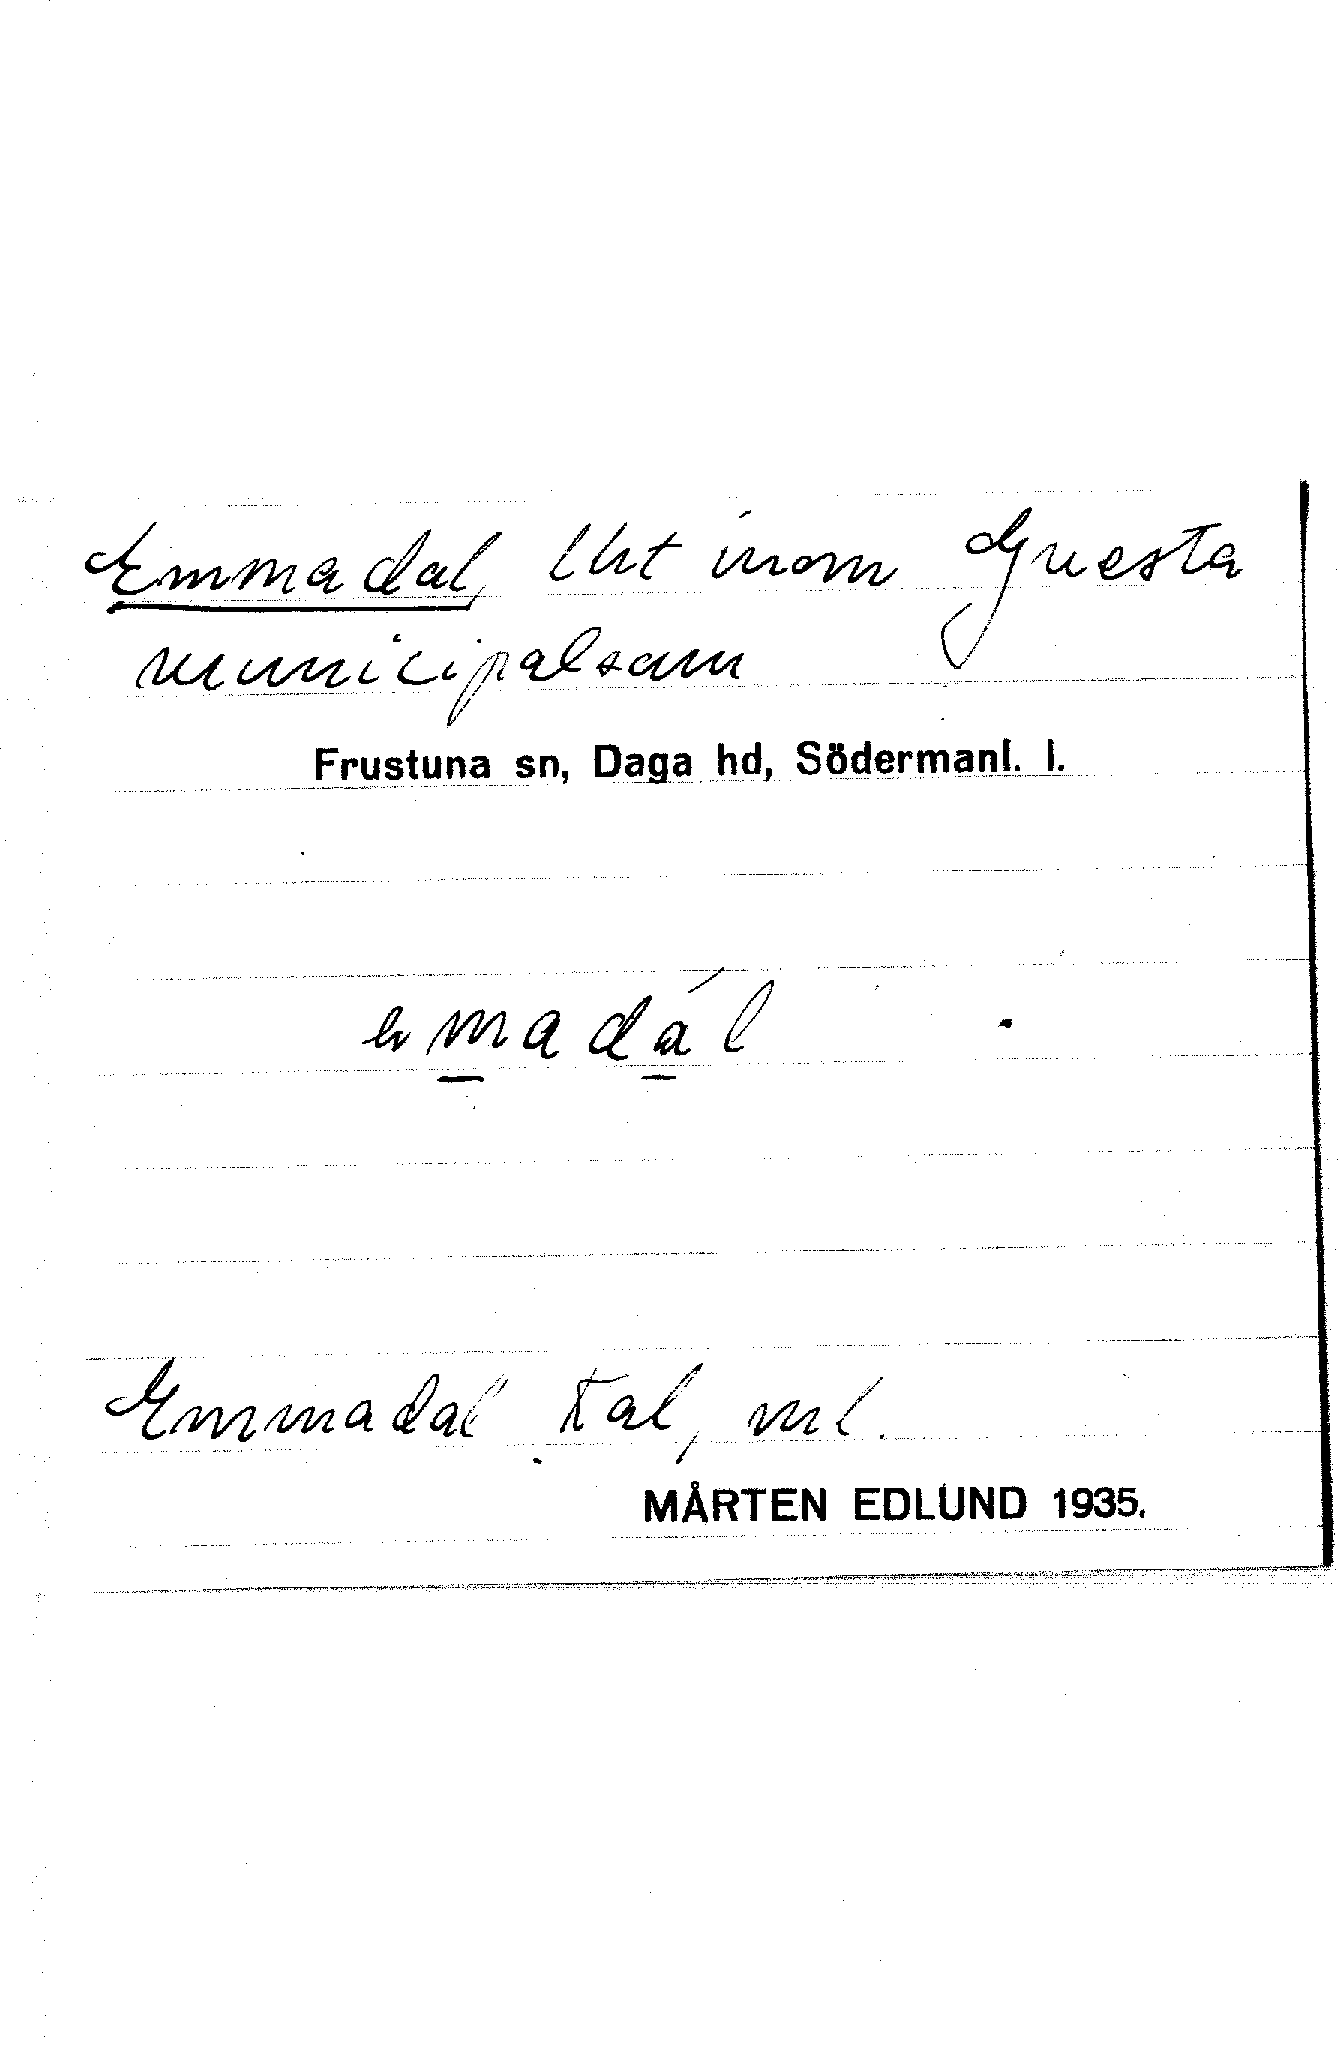 Emmadal, lht inom Gnesta
municipalsam
Frustuna sn, Daga hd, Södermanl. l.
emadál
Emmadal Kal, ml.
MÅRTEN EDLUND 1935.